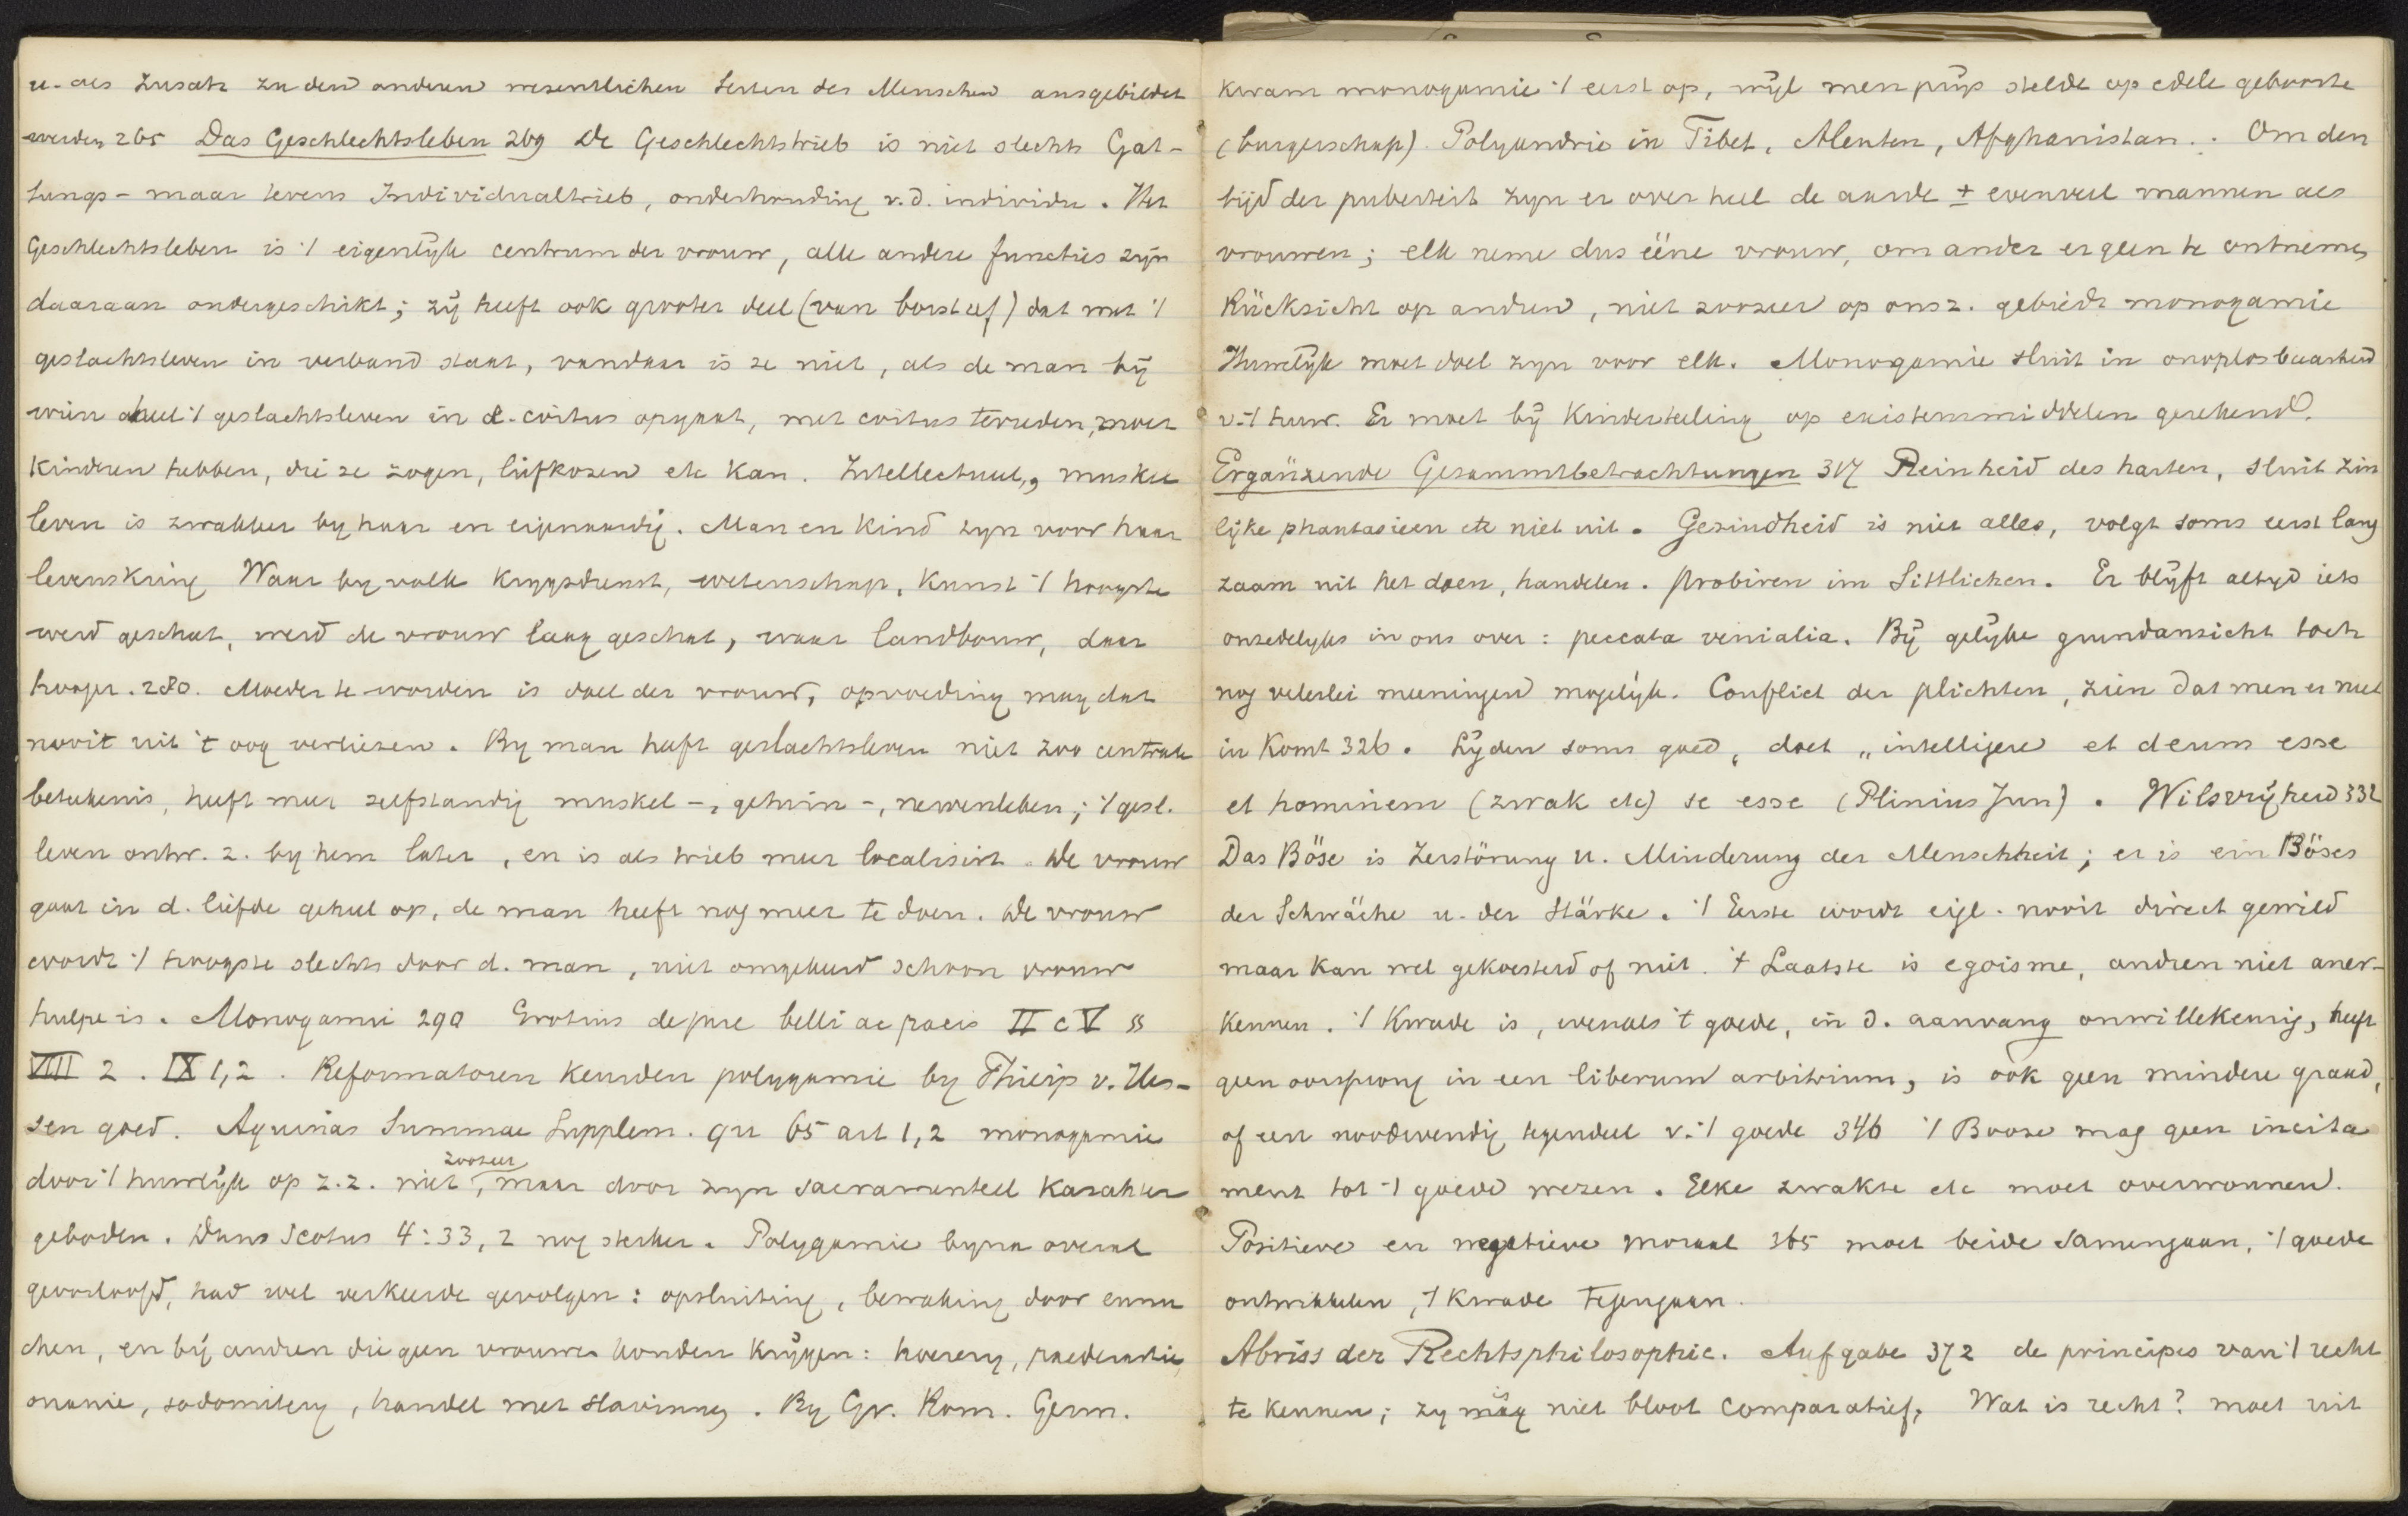 u. als Zusatz zu den anderen wesentlichen Seiten des Menschen ausgebildet
werden 265 Das Geschlechtsleben 269 De Geschlechtstrieb is niet slechts Gat-
tungs- maar tevens Individualtrieb, onderhouding v.d. individu. Het
Geschlechtsleben is 't eigenlijk centrum der vrouw, alle andere functies zijn
daaraan ondergeschikt; zij heeft ook grooter deel (van borst af) dat met 't
geslachtsleven in verband staat, vandaar is ze niet, als de man bij
wien heel 't geslachtsleven in d. coitus opgaat, met coitus tevreden, moet
kinderen hebben, die ze zogen, liefkozen etc kan. Intellectueel, muskel
leven is zwakker by haar en eigenaardig. Man en kind zyn voor haar
levenskring Waar by volk krygsdienst, wetenschap, kunst 't hoogste
werd geschat, werd de vrouw laag geschat, waar landbouw, daar
hooger. 280. Moeder te worden is doel der vrouw, opvoeding mag dat
nooit uit 't oog verliezen. By man heeft geslachtsleven niet zoo centrale
beteekenis, heeft meer zelfstandig muskel-, gehirn-, nervenleben; 't gesl.
leven ontw. z. by hem later, en is als trieb meer localisirt. De vrouw
gaat in d. liefde geheel op, de man heeft nog meer te doen. De vrouw
wordt 't hoogste slechts door d. man, niet omgekeerd schoon vrouw
hulpe is. Monogamie 290 Grotius de jure belli ac pacis II c V §§
VIII 2. IX 1,2. Reformatoren keurden polygamie by Philip v. Hes-
sen goed. Aquinas Summae Supplem. qu 65 art 1,2 monogamie
door 't huwlijk op z.z. niet zoozeer, maar door zyn sacramenteel karakter
geboden. Duns Scotus 4:33,2 nog sterker. Polygamie byna overal
geoorloofd, had wel verkeerde gevolgen: opsluiting, bewaking door eunu
chen, en bij andren die geen vrouwen konden krijgen: hoerery, paederastie,
onanie, sodomitery, handel met slavinnen. By Gr. Rom. Germ.
kwam monogamie 't eerst op, wijl men prijs stelde op edele geboorte
(burgerschap). Polyandrie in Tibet, Aleuten, Afghanistan.. Om den
tijd der puberteit zyn er over heel de aarde ± evenveel mannen als
vrouwen; elk neme dus ééne vrouw, om ander er geen te ontnemen,
Rücksicht op andren, niet zoozeer op ons z. gebiedt monogamie
Huwelijk moet doel zyn voor elk. Monogamie sluit in onoplosbaarheid
v. 't huw. Er moet bij kinderteeling op existenzmiddelen gerekend.
Ergänzende Gesammtbetrachtungen 317 Reinheid des harten, sluit zin
lijke phantasieen etc niet uit. Gezindheid is niet alles, volgt soms eerst lang
zaam uit het doen, handelen. Probiren im Sittlichen. Er blijft altyd iets
onzedelyks in ons over: peccata venialia. Bij gelijke grundansicht toch
nog velerlei meeningen mogelijk. Conflict der plichten, zien dat men er niet
in komt 326. Lijden soms goed, doet „intelligere et deum esse
et hominem (zwak etc) se esse (Plinius Jun). Wilsvrijheid 332
Das Böse is Zerstörung u. Minderung der Menschheit; er is ein Böses
der Schwäche u. der Stärke. 't Eerste wordt eigl. nooit direct gewild
maar kan wel gekoesterd of niet. 't Laatste is egoisme, andren niet aner-
kennen. 't Kwade is, evenals 't goede, in d. aanvang onwillekeurig, heeft
geen oorsprong in een liberum arbitrium, is ook geen mindere graad,
of een noodwendig tegendeel v. 't goede 346 't Booze mag geen incita
ment tot 't goede wezen. Elke zwakte etc moet overwonnen.
Positieve en negatieve moraal 365 moet beide samengaan, 't goede
ontwikkelen, 't kwade tegengaan.
Abriss der Rechtsphilosophie. Aufgabe 372 de principes van 't recht
te kennen; zy is niet bloot comparatief. Wat is recht? moet uit